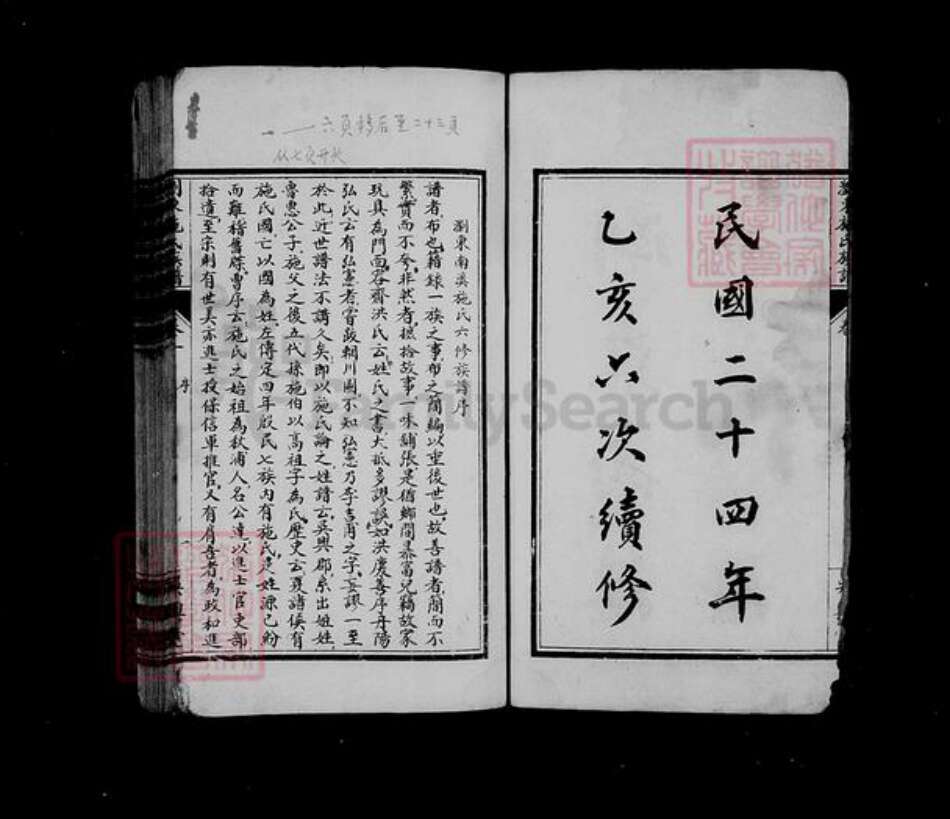 民國二十四年
乙亥六次續修
瀏東施氏族譜
六頁移后至二十三頁
从七頁开始
瀏東南溪施氏六修族譜序
譜者布也籍錄一族之事布之簡編以垂後世也故善譜者簡而不
繁質而不夸非然者摭拾故事一味鋪張是猶鄉間暴富兒竊故家
玩具為門面容齋洪氏云姓氏之書大抵多謬誤如洪慶善序丹陽
弘氏云有弘憲者嘗跋輞川圖不知弘憲乃李吉甫之字妄謬一至
於此近世譜法不講久矣即以施氏論之姓譜云吳興郡系出姬姓
魯惠公子施父之後五代孫施伯以高祖字為氏歷史云夏諸侯有
施氏國亡以國為姓左傳定四年殷民七族內有施氏是姓源已紛
而難稽舊牒曹序云施氏之始祖為秋浦人名公漳以進士官吏部
拾遺至宗則有世美亦進士授保信軍推官又有肖吾者為政和進
序
一
FamilySearch